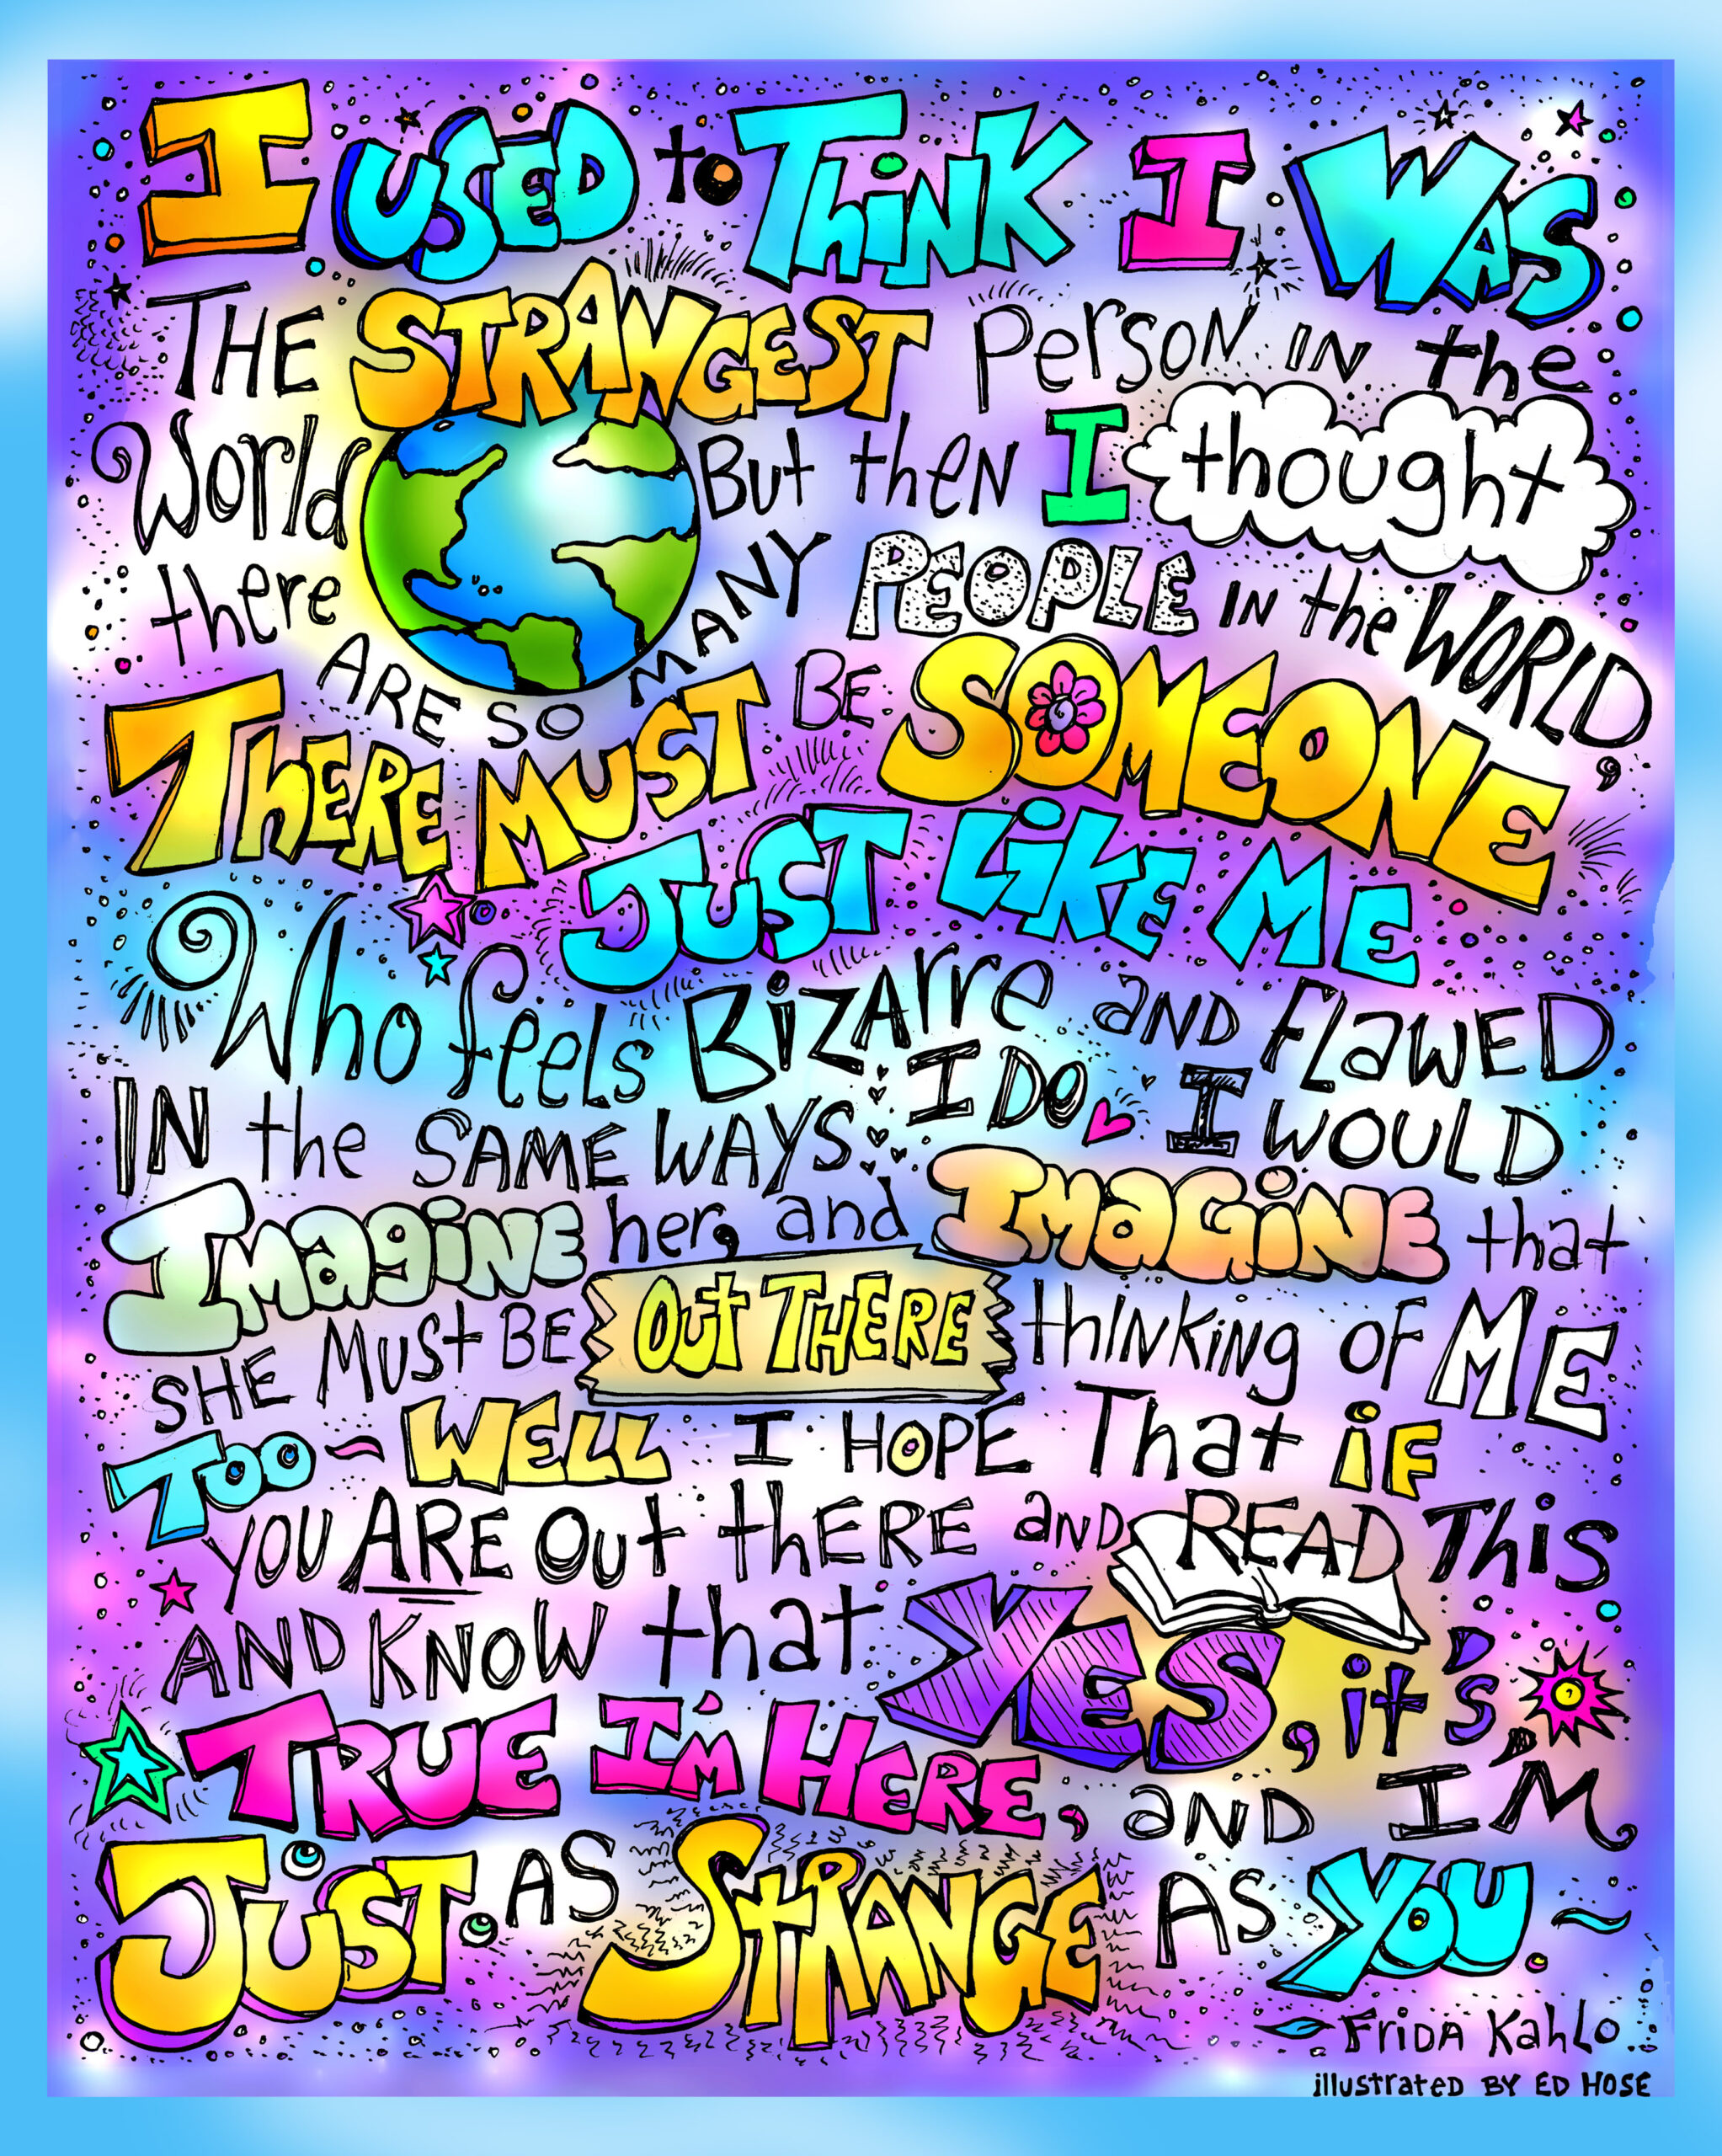 I USED to THiNK I WAS
THE STRANGEST PersoN IN the
World But theN I thought
there ARE SO MANY PEOPLE IN the WORLD,
THERE MUST BE SOMEONE
JUST LiKE ME
Who feels BiZArre aND FLaWED
IN the SAME WAYS I DO. I WOULD
IMagiNE her, and IMaGiNE that
SHE MUSt BE OUt THERE thINKiNg OF ME
TOO ~ WELL I HOPE That iF
YOU ARE OUt thERE aND READ THiS
AND KNOW that YES, it's,
TRUE I'M HERE, aND I'M
JUST AS StRANGE AS YOU ~
- FriDA KahLo
illustrateD BY ED HOSE